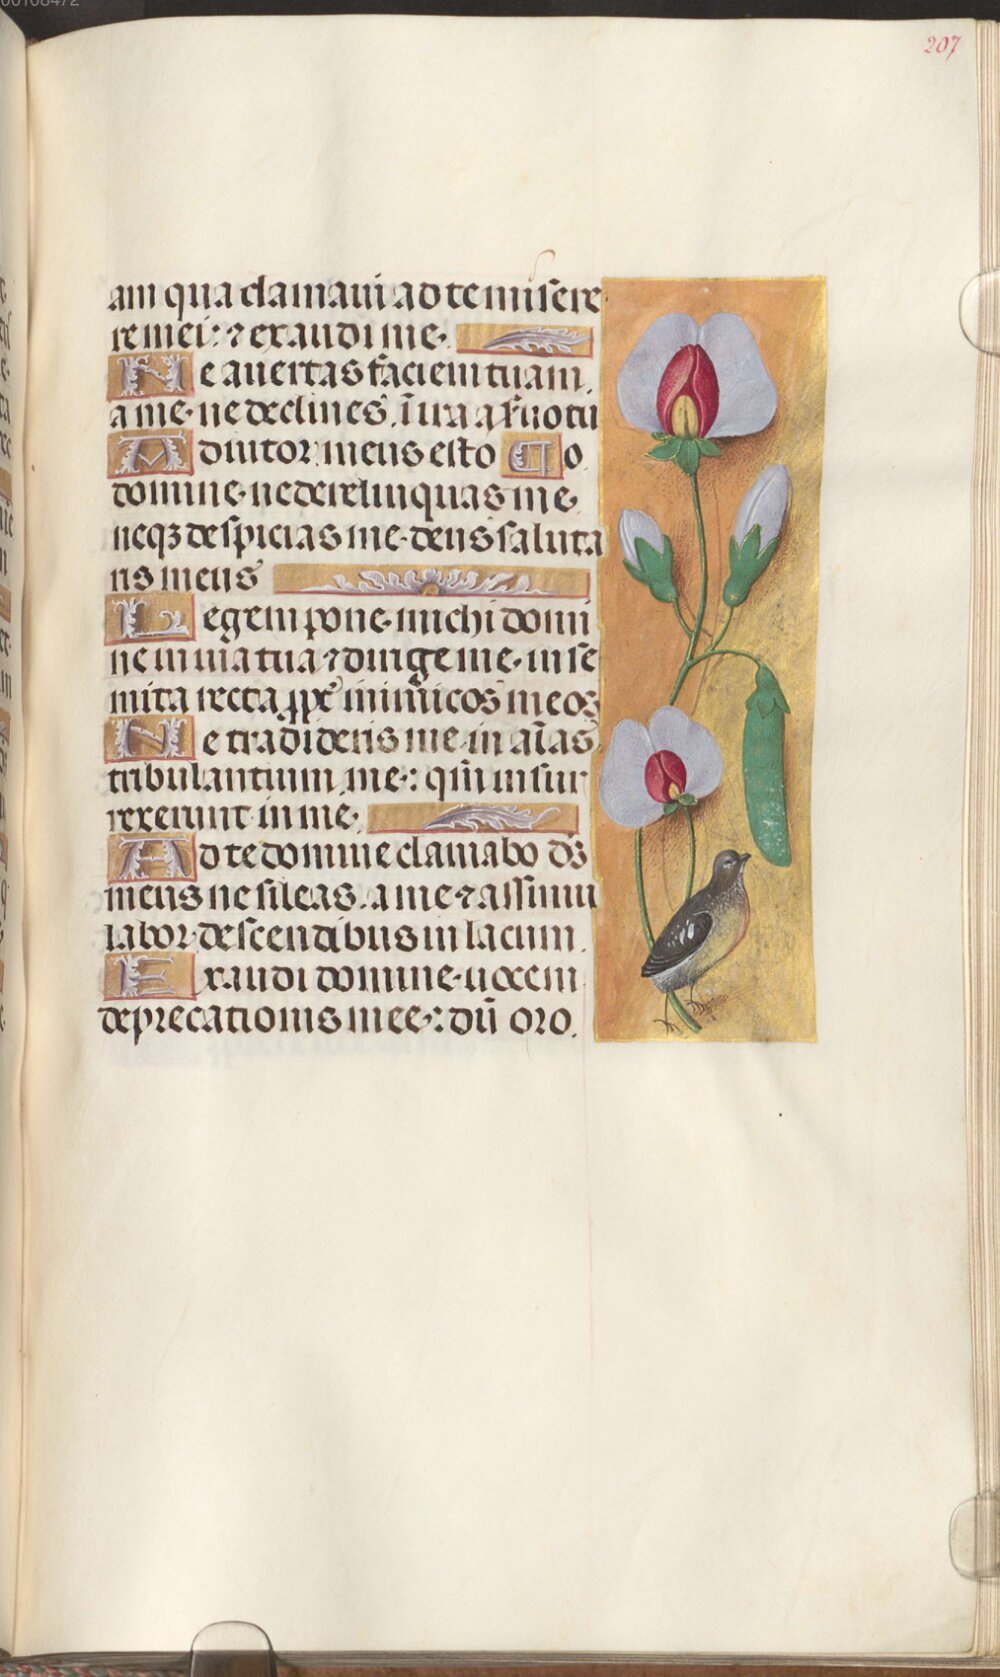 00108472
207
am qua clamavi ad te misere
re mei: ⁊ exaudi me.
Ne avertas faciem tuam.
a me. ne declines. ĩ ira a ſ̃uo tu
Adiutor meus esto ¶o
domine. ne derelinquas me.
neqȝ despicias me. deus saluta
ris meus
Legem pone. michi domi
ne in via tua ⁊ dirige me. in se
mita recta ꝓpt̃ inimicos meos
Ne tradideris me. in aĩas
tribulantium me.: qm̃ insur
rexerunt in me.
Ad te domine clamabo ds̃
meus ne sileas. a me ⁊ assimi
labor descendẽtibus in lacum.
Exaudi domine. vocem
deprecationis mee.: dũ oro.